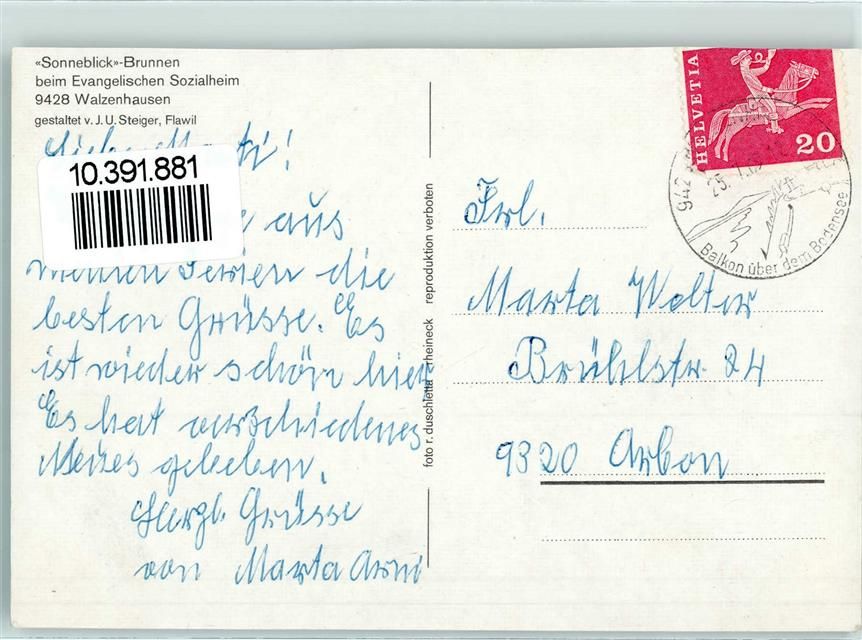 «Sonneblick»-Brunnen
beim Evangelischen Sozialheim
9428 Walzenhausen
gestaltet v. J. U. Steiger, Flawil
10.391.881
aus
meinen Ferien die
besten Grüsse. Es
ist wieder schön hier.
Es hat verschiedenes
Neues gegeben.
Herzl. Grüsse
von Marta Arni
foto r. duschletta rheineck reproduktion verboten
HELVETIA
20
942
25.
Balkon über dem Bodensee
Frl.
Marta Wolter
Brühlstr. 24
9320 Arbon